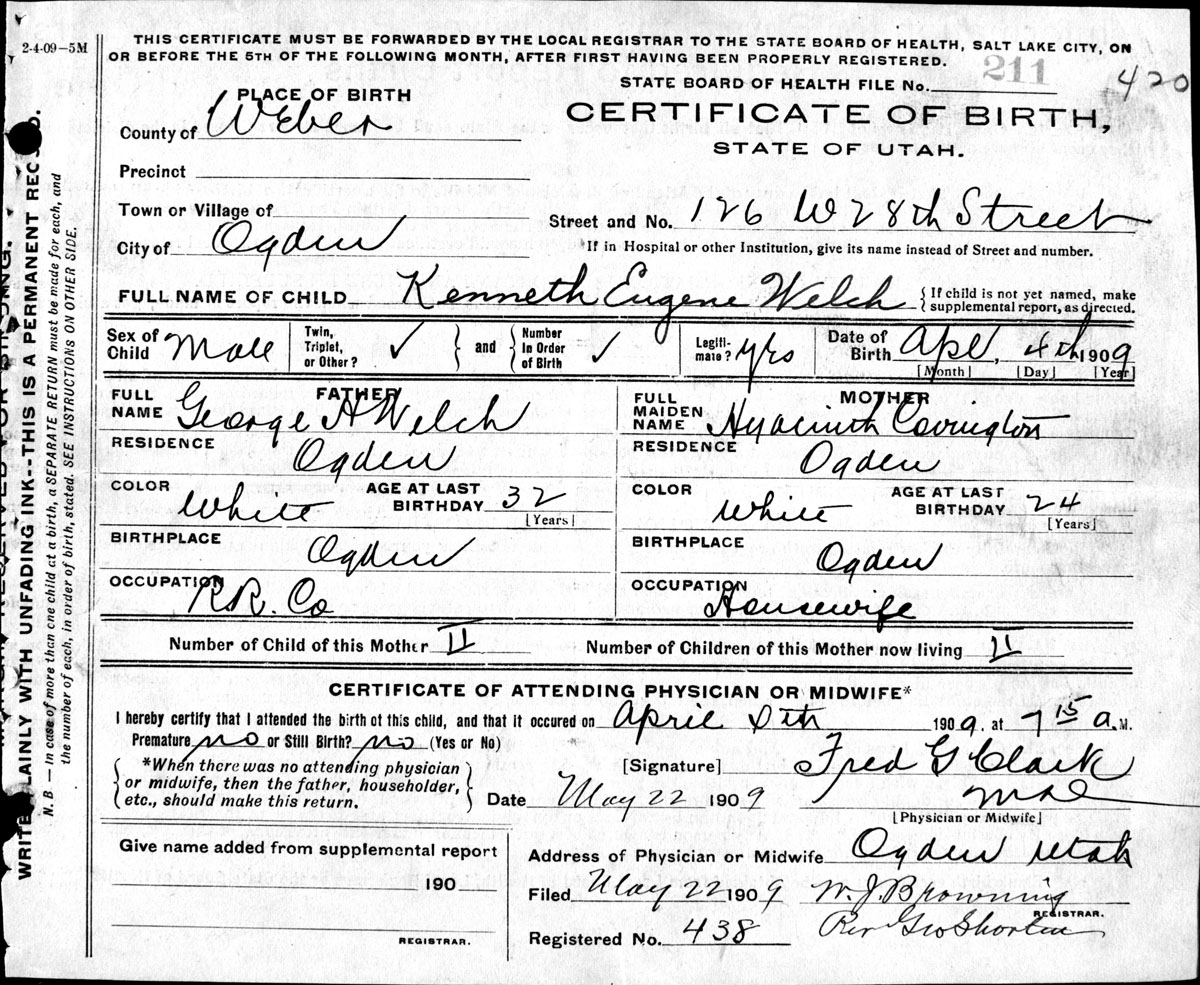 2-4-09-5M
THIS CERTIFICATE MUST BE FORWARDED BY THE LOCAL REGISTRAR TO THE STATE BOARD OF HEALTH, SALT LAKE CITY, ON
OR BEFORE THE 5TH OF THE FOLLOWING MONTH, AFTER FIRST HAVING BEEN PROPERLY REGISTERED.
211
420
STATE BOARD OF HEALTH FILE No.
PLACE OF BIRTH
CERTIFICATE OF BIRTH,
STATE OF UTAH.
County of Weber
Precinct
Town or Village of
City of Ogden
Street and No. 126 W 28th Street
If in Hospital or other Institution, give its name instead of Street and number.
FULL NAME OF CHILD Kenneth Eugene Welch
{If child is not yet named, make
supplemental report, as directed.
Sex of Child Male
Twin, Triplet, or Other? ✓
and
Number in Order of Birth ✓
Legiti-mate? yes
Date of Birth Apl, 4th 1909
[Month] [Day] [Year]
FATHER
FULL NAME George A Welch
RESIDENCE
Ogden
COLOR White
AGE AT LAST BIRTHDAY 32
[Years]
BIRTHPLACE
Ogden
OCCUPATION
R.R. Co
MOTHER
FULL MAIDEN NAME Hyacinth Covington
RESIDENCE
Ogden
COLOR White
AGE AT LAST BIRTHDAY 24
[Years]
BIRTHPLACE
Ogden
OCCUPATION
Housewife
Number of Child of this Mother II
Number of Children of this Mother now living II
CERTIFICATE OF ATTENDING PHYSICIAN OR MIDWIFE*
I hereby certify that I attended the birth of this child, and that it occured on April 1909. at 7 15 a.M.
Premature no or Still Birth? no (Yes or No)
*When there was no attending physician
or midwife, then the father, householder,
etc., should make this return.
[Signature] Fred G Clark
Date May 22 1909
[Physician or Midwife]
Give name added from supplemental report
190
REGISTRAR.
Address of Physician or Midwife Ogden Utah
Filed May 22 1909 W. J. Browning
REGISTRAR.
Registered No. 438
WRITE PLAINLY WITH UNFADING INK--THIS IS A PERMANENT RECORD.
N. B.—In case of more than one child at a birth, a SEPARATE RETURN must be made for each, and
the number of each, in order of birth, stated. SEE INSTRUCTIONS ON OTHER SIDE.